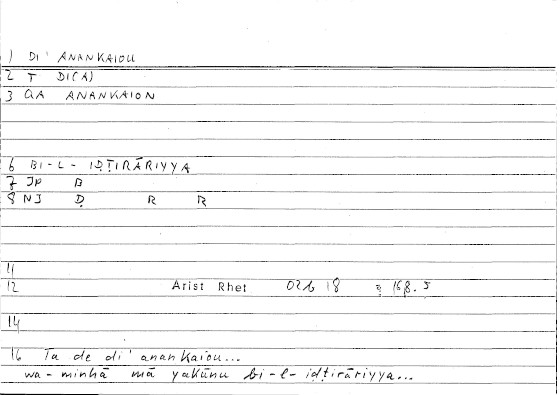 1 DI' ANANKAIOU
2 T DI(A)
3 QA ANANKAION
6 BI-L-IḌṬIRĀRIYYA
7 IP B
8 NI Ḍ R R
11
12 Arist Rhet 02b 18 = 168.5
14
16 Ta de di' anankaiou...
wa-minhā mā yakūnu bi-l-iḍṭirāriyya...